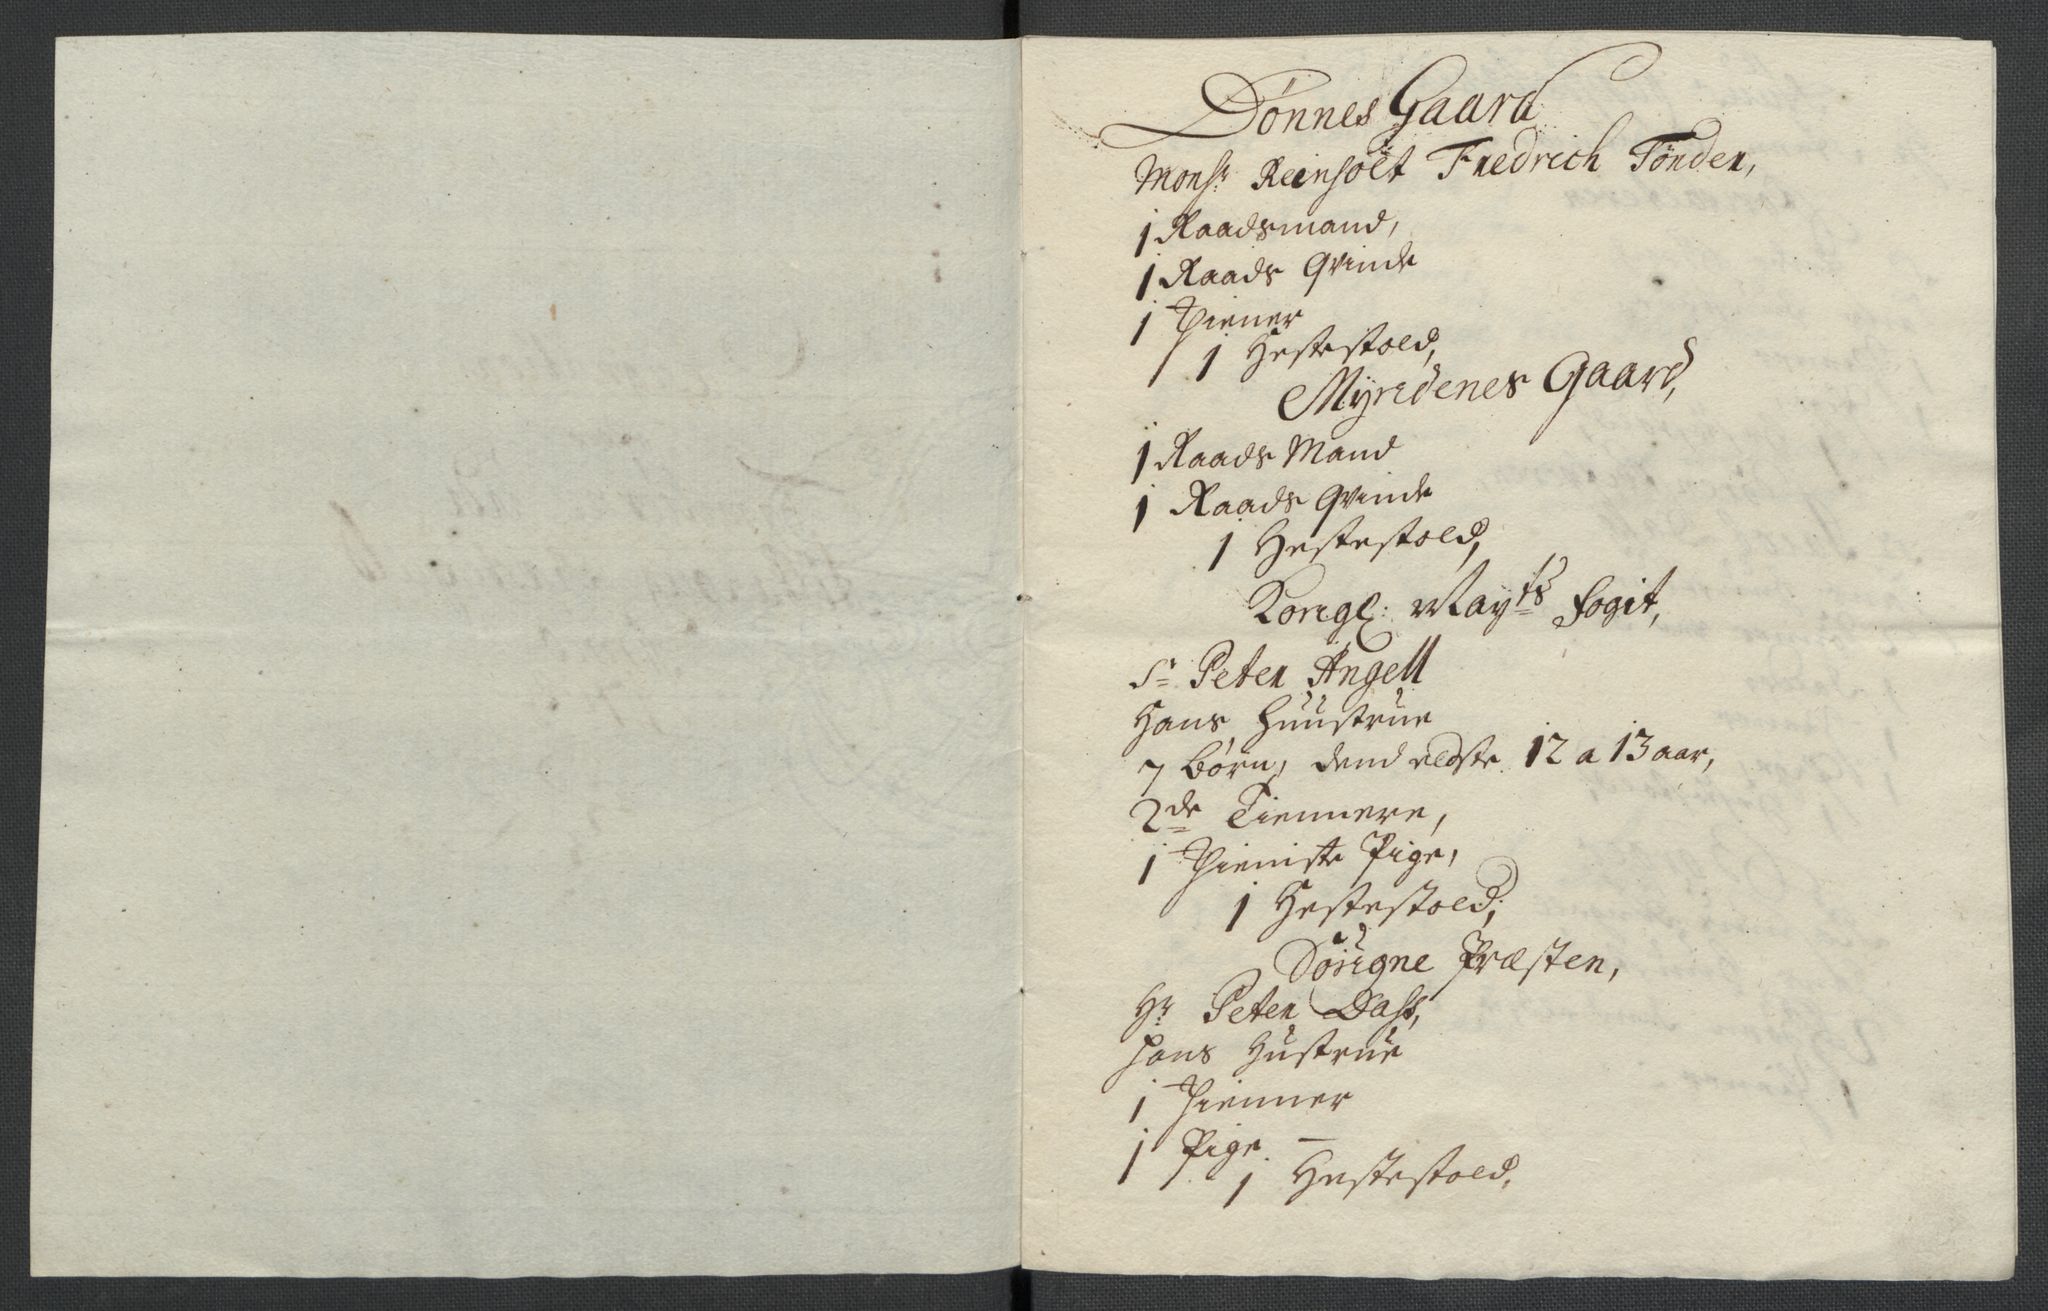 Dønnes Gaard
Monsr Reinholt Fredrich Tønder,
1 Raadsmand,
1 Raads Qvinde
1 Thiener
1 Hestestold,
Myredenes Gaard,
1 Raads Mand
1 Raads Qvinde
1 Hestestold,
Kongl: Mayts fogit,
Sr Peter Angell
Hans Huustrue
7 børn, dend eldste 12 a 13 aar,
2de Tiennere,
1 Thieniste Pige,
1 Hestestold,
Sogne Præsten,
Hr Peter Dass,
Hans Hustrue
1 Thienner
1 Pige —
1 Hestestold,